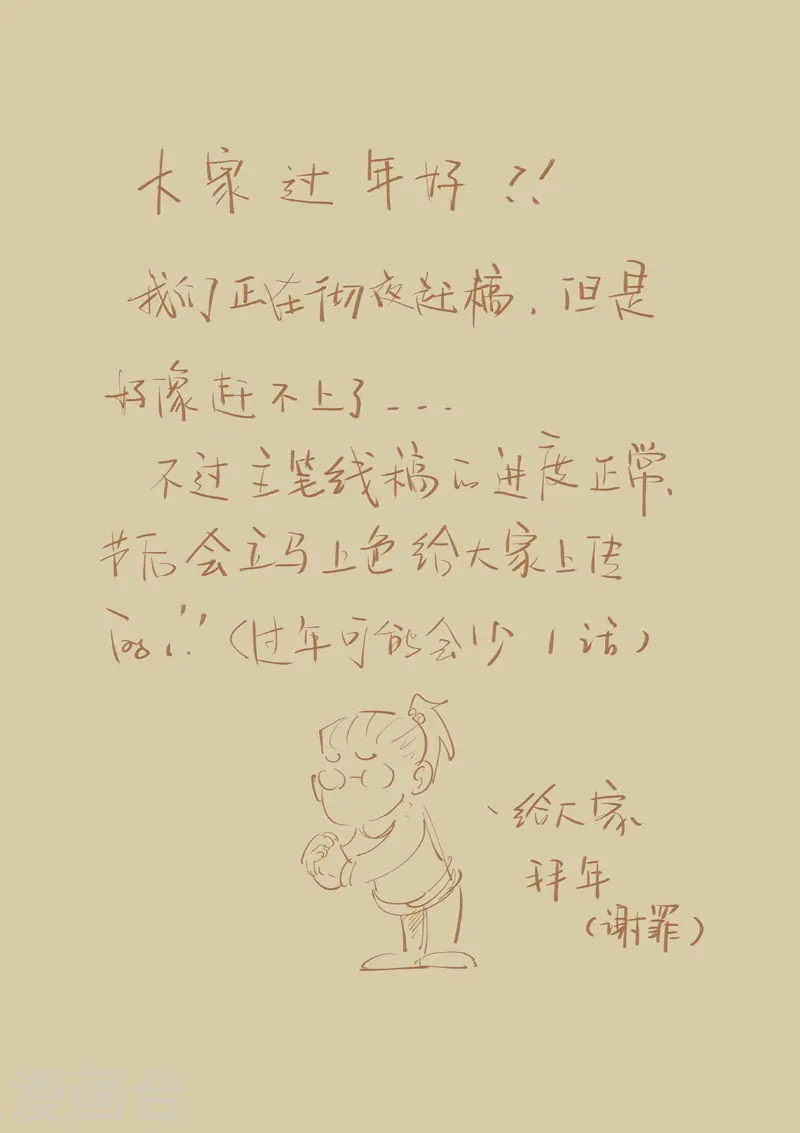 大家过年好!!
我们正在彻夜赶稿,但是
好像赶不上了---
不过主笔线稿的进度正常,
节后会立马上色给大家上传
的!!(过年可能会少1话)
、给大家
拜年
(谢罪)
漫画台